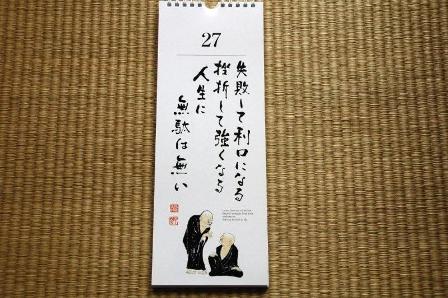 27
失敗して利口になる
挫折して強くなる
人生に
無駄は無い